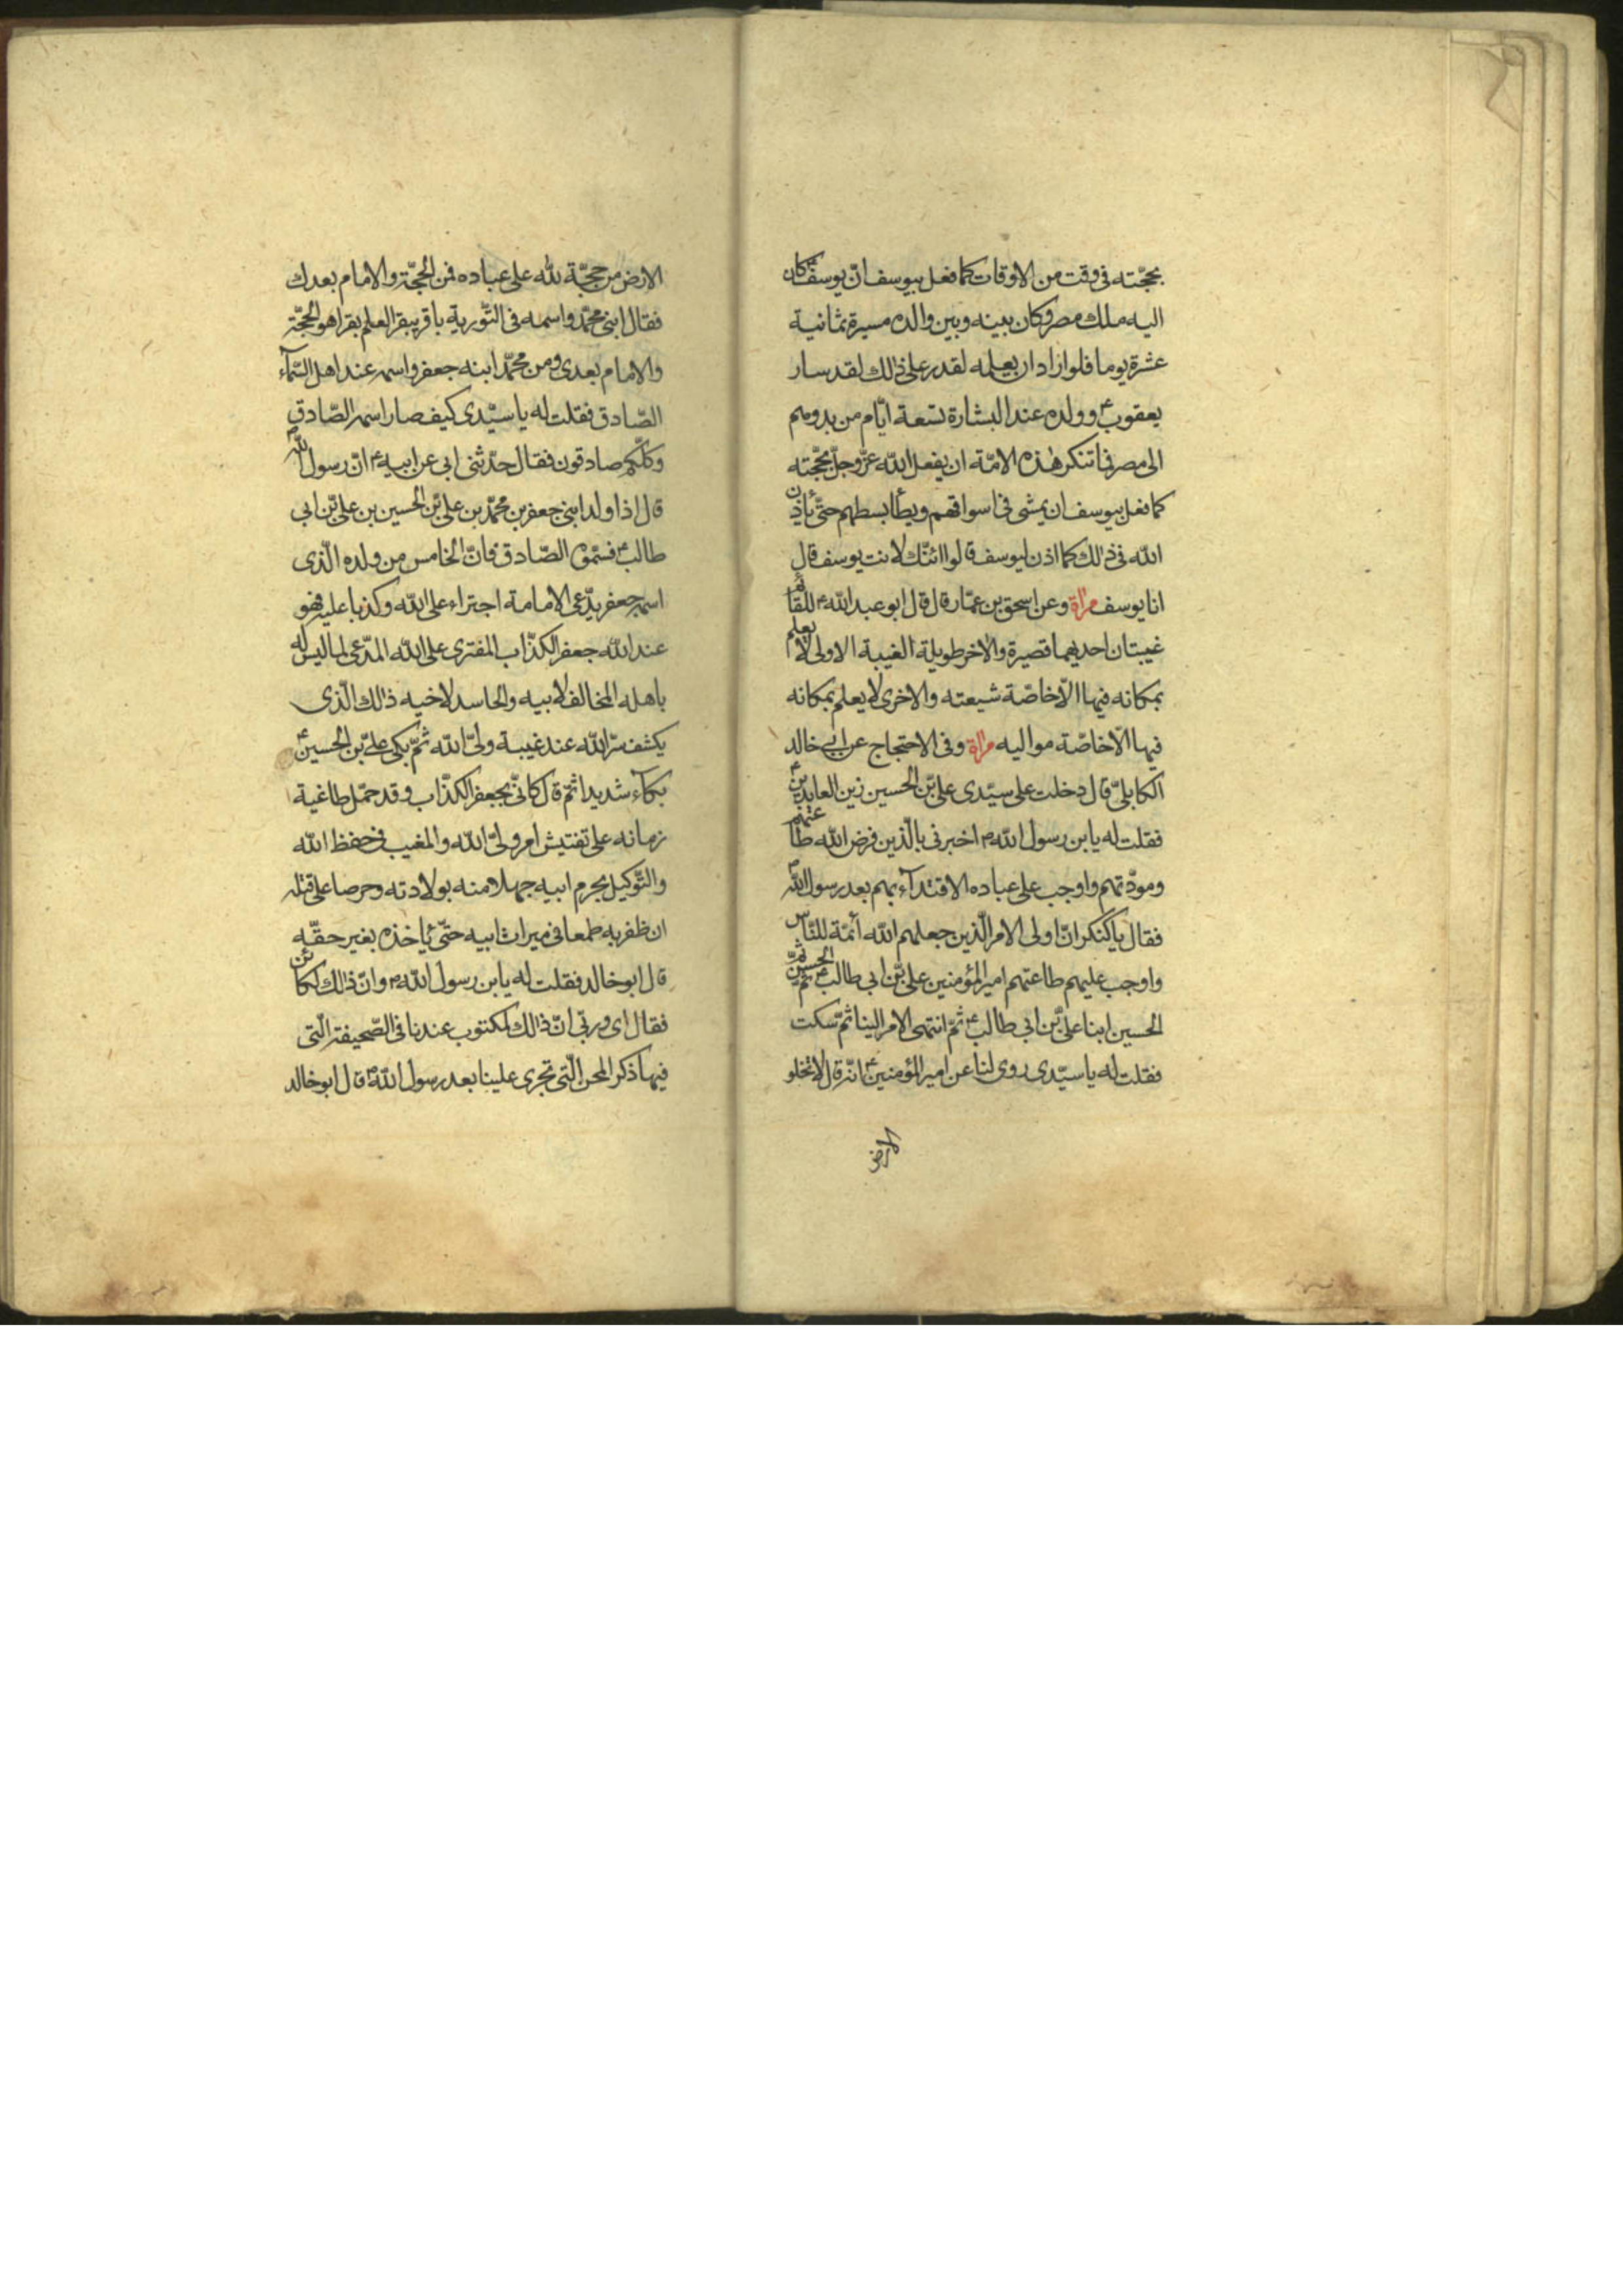 بحجّته فی وقت من الاوقات كما فعل بیوسف انّ یوسف كان
الیه ملك مصر وكان بینه وبین والده مسیرة ثمانیة
عشرة یوما فلو اراد ان یعلمه لقدر علی ذالك لقد سار
یعقوب ع وولده عند البشارة تسعة ایّام من بدوهم
الی مصر فما تنكر هذه الامّة ان یفعل الله عزّ وجلّ بحجّته
كما فعل بیوسف ان یمشی فی اسواقهم ویطأ بسطهم حتّی یأذن
الله فی ذالك كما اذن لیوسف قالوا ائنّك لانت یوسف قال
انا یوسف مرآة وعن اسحق بن عمّار قال قال ابو عبد الله ع للقائم
غیبتان احدیهما قصیرة والاخر طویلة الغیبة الاولی لا یعلم
بمكانه فیها الّا خاصّة شیعته والاخری لا یعلم بمكانه
فیها الّا خاصّة موالیه مرآة وفی الاحتجاج عن ابی خالد
الكابلیّ قال دخلت علی سیّدی علیّ بن الحسین زین العابدین ع
فقلت له یا بن رسول الله ص اخبرنی بالّذین فرض الله طاعتهم
ومودّتهم واوجب علی عباده الاقتدآء بهم بعد رسول الله ص
فقال یا كنكر انّ اولی الامر الّذین جعلهم الله أئمّة للنّاس
واوجب علیهم طاعتهم امیر المؤمنین علیّ بن ابی طالب ع ثمّ الحسن ثمّ
الحسین ابنا علیّ بن ابی طالب ع ثمّ انتهی الامر الینا ثمّ سكت
فقلت له یا سیّدی روی لنا عن امیر المؤمنین ع انّه قال لا تخلو
الارض
الارض من حجّة لله علی عباده فمن الحجّة والامام بعدك
فقال ابنی محمّد واسمه فی التّوریة باقر یبقر العلم بقرا هو الحجّة
والامام بعدی ومن محمّد ابنه جعفر واسمه عند اهل السّمآء
الصّادق فقلت له یا سیّدی كیف صار اسمه الصّادق
وكلّكم صادقون فقال حدّثنی ابی عن ابیه ع انّ رسول الله ص
قال اذا ولد ابنی جعفر بن محمّد بن علیّ بن الحسین بن علیّ بن ابی
طالب ع فسمّوه الصّادق فانّ الخامس من ولده الّذی
اسمه جعفر یدّعی الامامة اجتراء علی الله وكذبا علیه فهو
عند الله جعفر الكذّاب المفتری علی الله المدّعی لما لیس له
باهله المخالف لابیه والحاسد لاخیه ذالك الّذی
یكشف سرّ الله عند غیبة ولیّ الله ثمّ بكی علیّ بن الحسین ع
بكآء شدیدا ثمّ قال كانّی بجعفر الكذّاب وقد حمّل طاغیة
زمانه علی تفتیش امر ولیّ الله والمغیب فی حفظ الله
والتّوكیل بحرم ابیه جهلا منه بولادته وحرصا علی قتله
ان ظفر به طمعا فی میراث ابیه حتّی یأخذه بغیر حقّه
قال ابو خالد فقلت له یا بن رسول الله ص وانّ ذالك لكائن
فقال ای وربّی انّ ذالك لمكتوب عندنا فی الصّحیفة الّتی
فیها ذكر المحن الّتی تجری علینا بعد رسول الله ص قال ابو خالد